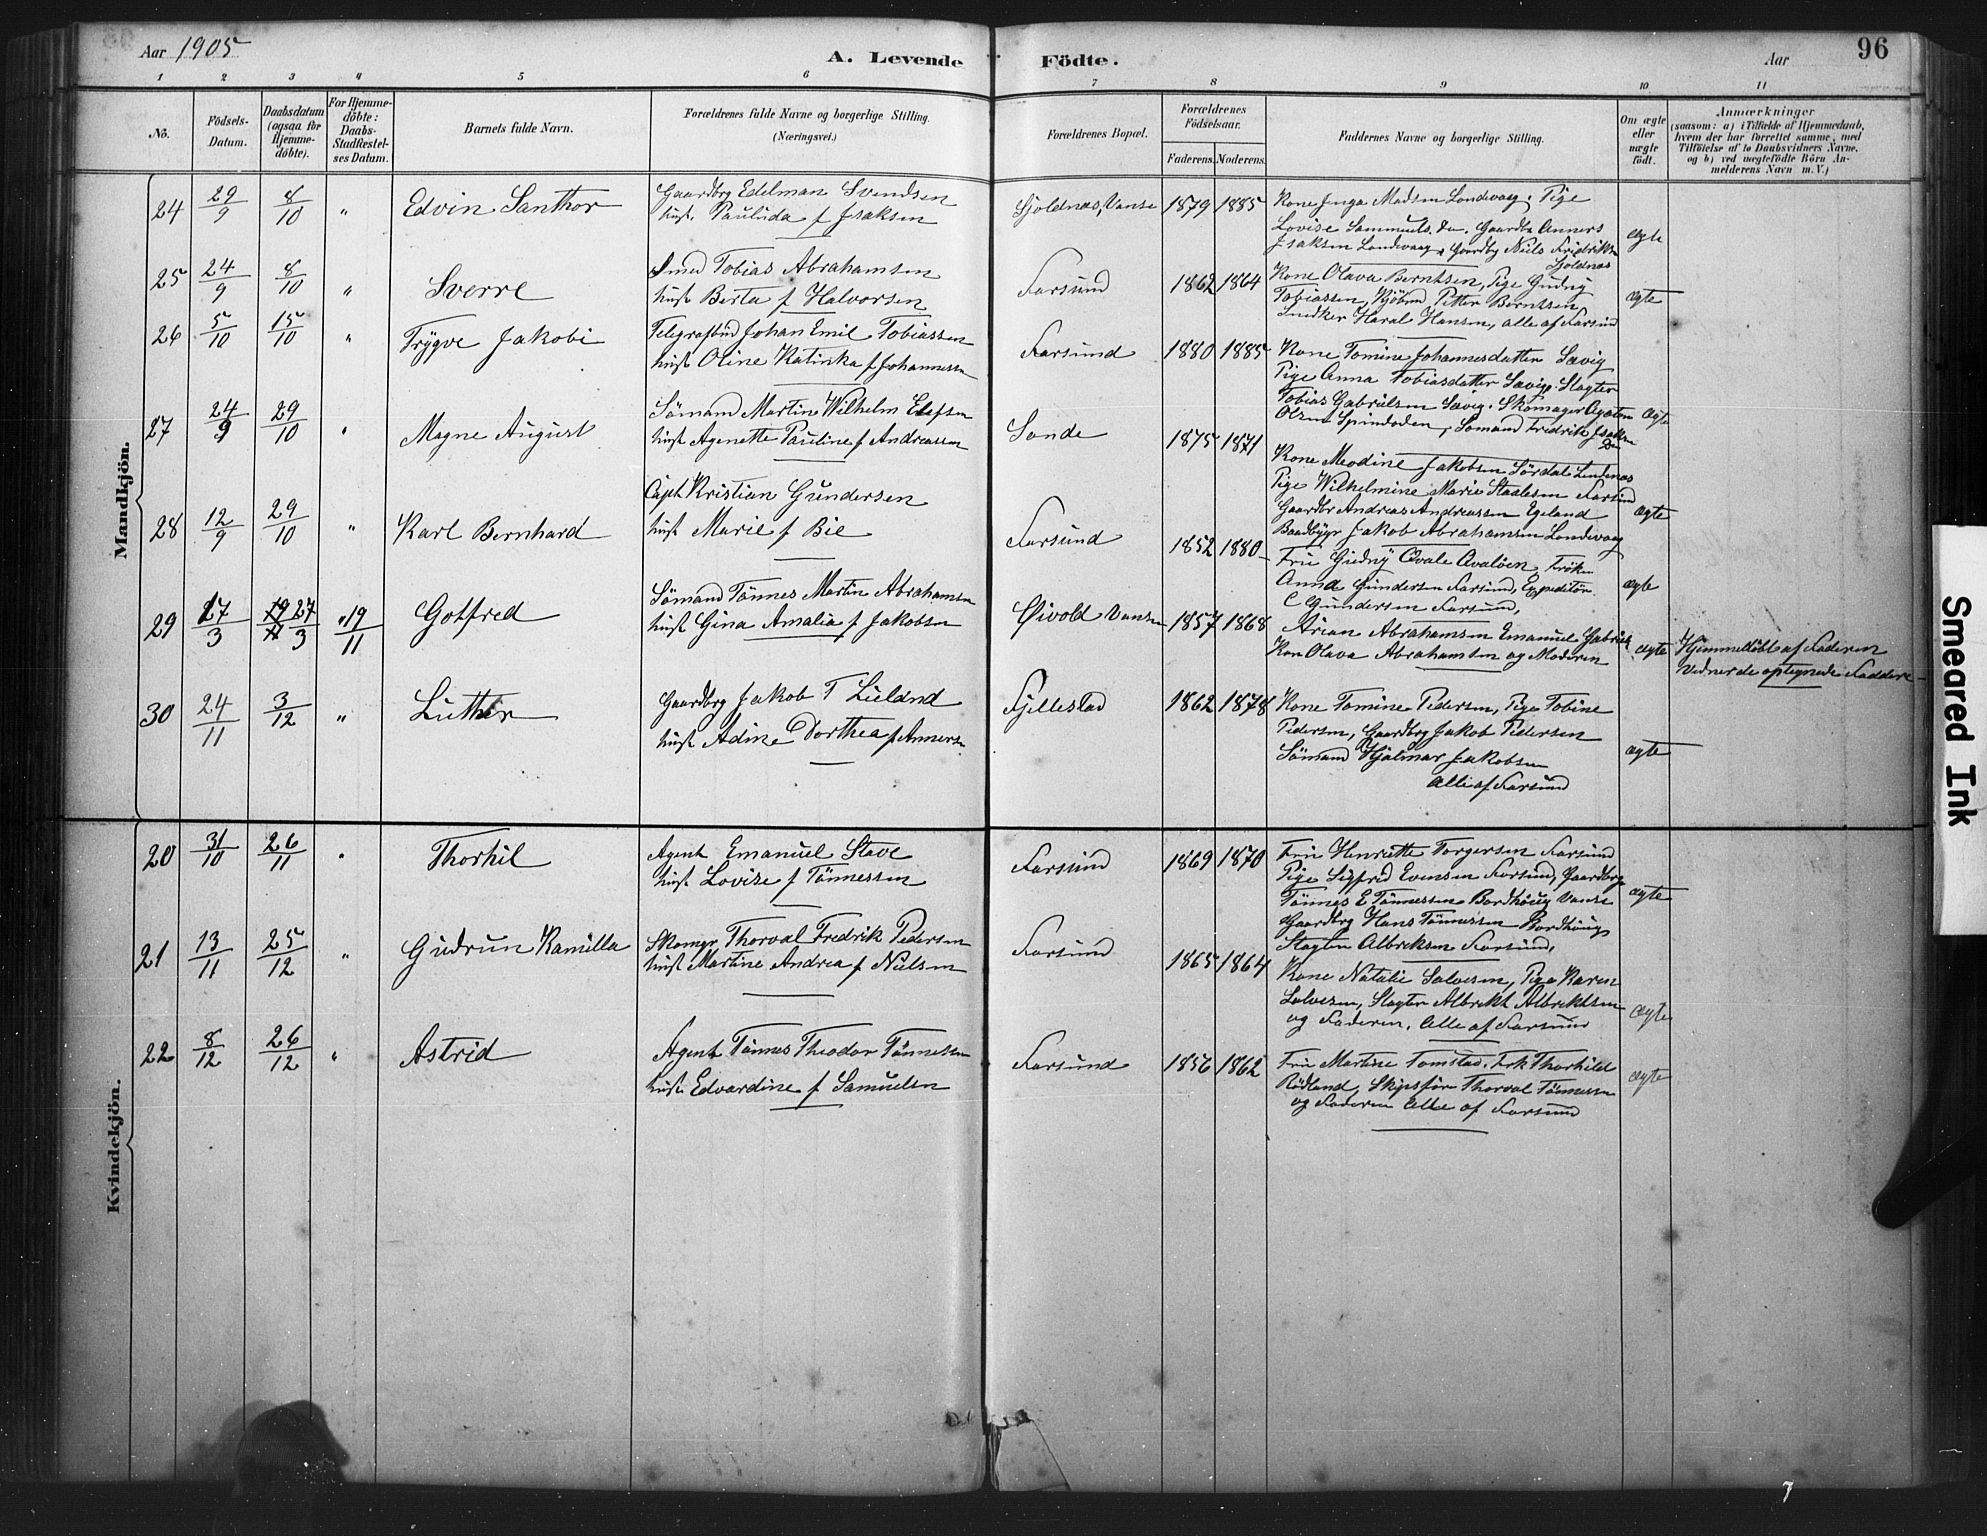 Aar 1905
A. Levende Födte.
Aar
96
1 2 3 4 5 6 7 8 9 10 11
No.
Födsels-
Datum.
Daabsdatum
(ogsaa for
Hjemme-
döbte).
For Hjemme-
döbte:
Daabs-
Stadfæstel-
ses Datum.
Barnets fulde Navn.
Forældrenes fulde Navne og borgerlige Stilling.
(Næringsvei.)
Forældrenes Bopæl.
Forældrenes
Födselsaar.
Faderens. Moderens.
Faddernes Navne og borgerlige Stilling.
Om ægte
eller
uægte
födt.
Anmærkninger
(saasom: a) i Tilfælde af Hjemmedaab,
hvem der har forrettet samme, med
Tilföielse af to Daabsvidners Navne,
og b) ved uægtefödte Börn An-
melderens Navn m. V.)
Mandkjön.
24 29/9 8/10 " Edvin Santhor
Gaardbrg Edelman Svendsen
hust Paulida f Isaksen
Sjoldnæs, Vanse 1879 1885
Kone Inga Madsen Londevaag, Pige
Lovise Sammuels. do. Gaardbr Anners
Isaksen Londevaag, Gaardbg Niels Fredriksen
Sjoldnæs
ægte
25 24/9 8/10 " Sverre
Smed Tobias Abrahamsen
hust Berta f Halvorsen
Farsund 1862 1864
Kone Olava Berntsen, Pige Gudny
Tobiassen, Kjöbmd Petter Berntsen
Snedker Haral Hansen, alle af Farsund
ægte
26 5/10 15/10 " Trygve Jakobi
Telegrafbud Johan Emil Tobiassen
hust Oline Katinka f Johannessen
Farsund 1880 1885
Kone Tomine Johannesdatter Sævig
Pige Anna Tobiasdatter Sævig. Slagter
Tobias Gabrielsen Sævig. Skomager
Olsen Spindoden, Sömand Fredrik Isaksen
ægte
27 24/9 29/10 " Magne August
Sömand Martin Wilhelm Elefsen
hust Agenette Pauline f Andreassen
Sande 1875 1871
Kone Meodine Jakobsen Sördal Lindenæs
Pige Wilhelmine Marie Staalesen Farsund
Gaardbr Andreas Andreassen Egeland
Baadbygr Jakob Abrahamsen Londevaag
ægte
28 12/9 29/10 " Karl Bernhard
Capt Kristian Gundersen
hust Marie f Bie
Farsund 1852 1880
Fru Gudny Qvale Qvalöen, Frök
Anna Gundersen Farsund, Expeditör
C Gundersen Farsund,
ægte
29 17/3 27/3 " 19/11 Gotfred
Sömand Tönnes Martin Abrahamsen
hust Gina Amalia f Jakobsen
Øivold Vanse 1857 1868
Arian Abrahamsen Emanuel Gabriels
Kon Olava Abrahamsen og Moderen
ægte
Hjemmedöbt af Faderen
Vidner de optegnede Faddere
30 24/11 3/12 " Luther
Gaardbrg Jakob T Lieland
hust Adine Dorthea f Annersen
Fjellestad 1862 1878
Kone Tomine Pedersen, Pige Tobine
Pedersen, Gaardbrg Jakob Pedersen
Sömand Hjalmar Jakobsen
Alle af Farsund
ægte
Kvindekjön.
20 31/10 26/11 " Thorhil
Agent Emanuel Stave
hust Lovise f Tönnessen
Farsund 1869 1870
Fru Henriette Torgersen Farsund
Pige Sigfred Evensen Farsund, Gaardbrg
Tönnes E Tönnessen Bordhoug Vanse
Gaardbrg Hans Tönnessen Bordhoug
Slagter Albriksen Farsund,
ægte
21 13/11 25/12 " Gudrun Kamilla
Skomgr Thorval Fredrik Pedersen
hust Martine Andrea f Nielsen
Farsund 1865 1864
Kone Natalie Salvesen, Pige Karen
Salvesen, Slagter Albrekt Albrektsen
og Faderen, Alle af Farsund
ægte
22 8/12 26/12 " Astrid
Agent Tönnes Theodor Tönnesen
hust Edvardine f Samuelsen
Farsund 1856 1862
Fru Martine Tomstad. Frk Thorhild
Rödland, Skipsför Thorval Tönnessen
og Faderen Alle af Farsund
ægte
Smeared Ink